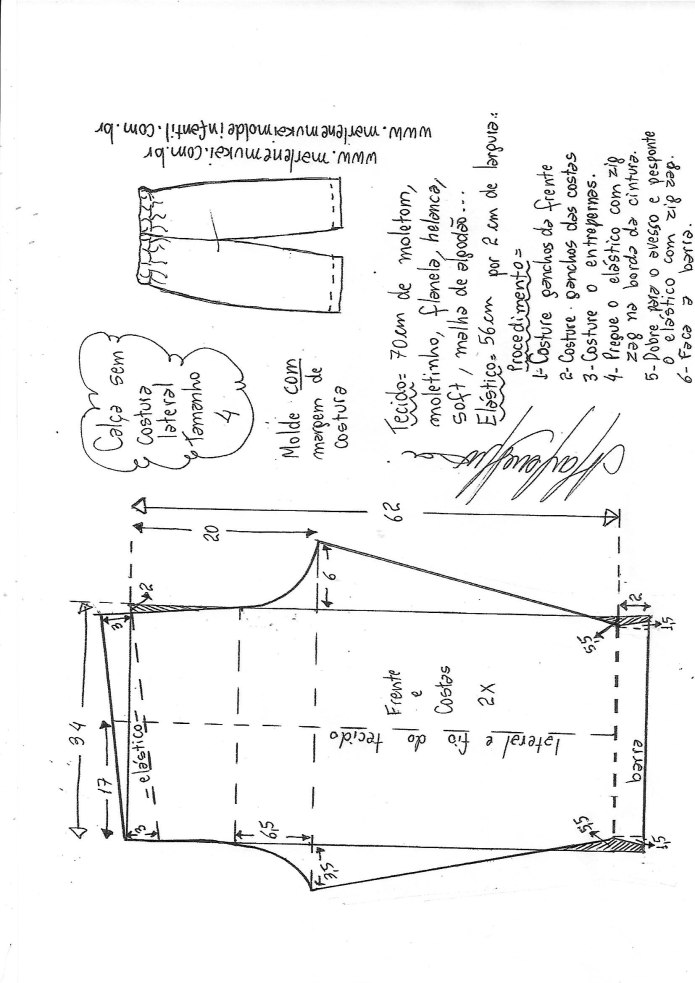 www.marlenemukaimoldeinfantil.com.br
www.marlenemukai.com.br
Calça sem
costura
lateral
Tamanho
4
Molde com
margem de
costura
Tecido= 70cm de moletom,
moletinho, flanela, helanca,
soft, malha de algodão...
Elástico= 56cm por 2cm de largura.
Procedimento=
1- Costure ganchos da frente
2- Costure ganchos das costas
3- Costure o entrepernas.
4- Pregue o elástico com zig
zag na borda da cintura.
5- Dobre para o avesso e pesponte
o elástico com zig zag.
6- Faça a barra.
62
20
2
3
6
34
17
elástico
3
6,5
3,5
Frente
e
Costas
2X
lateral e fio do tecido
barra
5,5
2
1,5
5,5
1,5